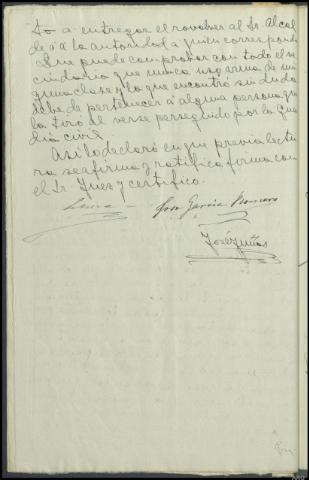 to a entregar el rovolver al Sr. Alcal
de o a la autoridad a quien correspond
a que puede comprobar con todo el ve
cindario que nunca usó arma de nin
guna clase y la que encontró sin duda
debe de pertenecer a alguna persona que
la tiró al verse perseguido por la Guar
dia civil.
Asi lo declaró en que previa lectu
ra se afirma y ratifica firma con
el Sr. Juez y certifico.
Garcia Romero
José